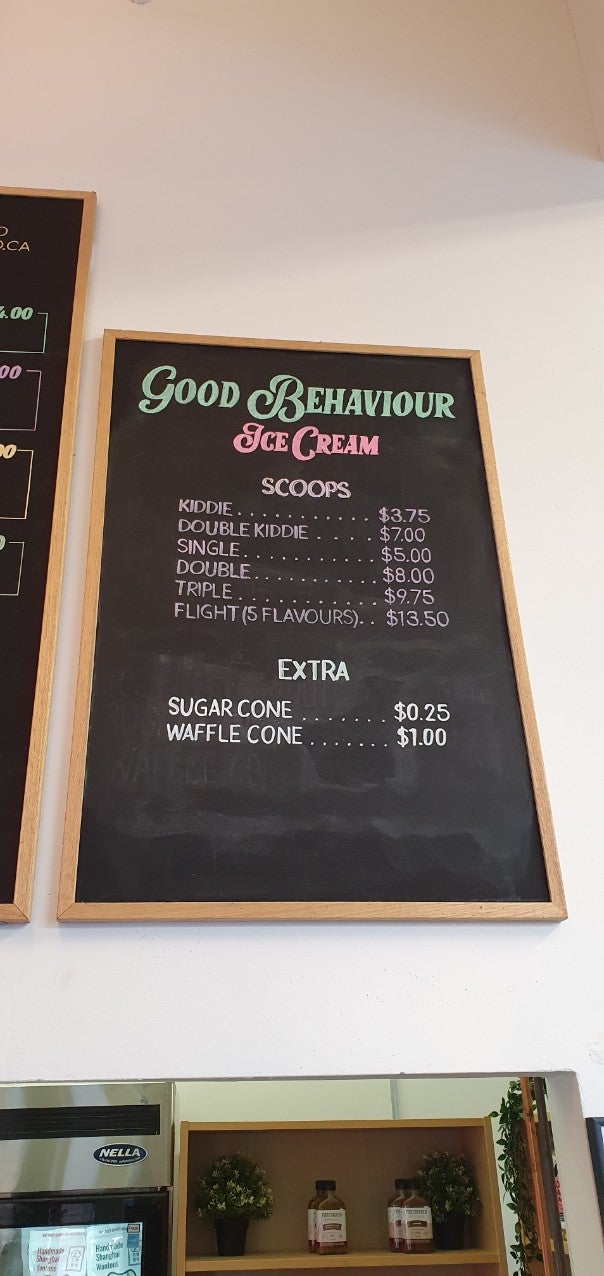 O.CA
4.00
00
GOOD BEHAVIOUR
ICE CREAM
SCOOPS
KIDDIE............ $3.75
DOUBLE KIDDIE ..... $7.00
SINGLE........... $5.00
DOUBLE.......... $8.00
TRIPLE........... $9.75
FLIGHT (5 FLAVOURS).. $13.50
EXTRA
SUGAR CONE ....... $0.25
WAFFLE CONE ....... $1.00
NELLA
Handmade
Shanghai
Wontons
Handmade
Shanghai
Wontons